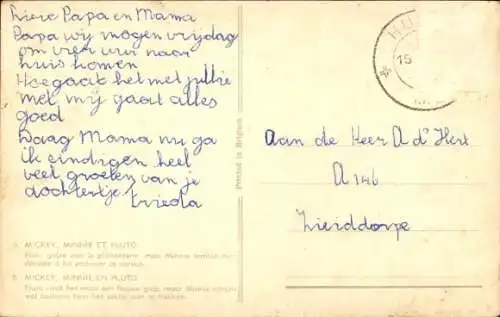 Lieve Papa en Mama
Papa wij mogen vrijdag
om vier uur naar
huis komen
Hoe gaat het met jullie
met mij gaat alles
goed
Daag Mama nu ga
ik eindigen heel
veel groeten van je
dochtertje
Printed in Belgium
HU
15
Aan de Heer A d' Hert
A 146
Zuiddorpe
MICKEY, MINNIE ET PLUTO
MICKEY, MINNIE EN PLUTO